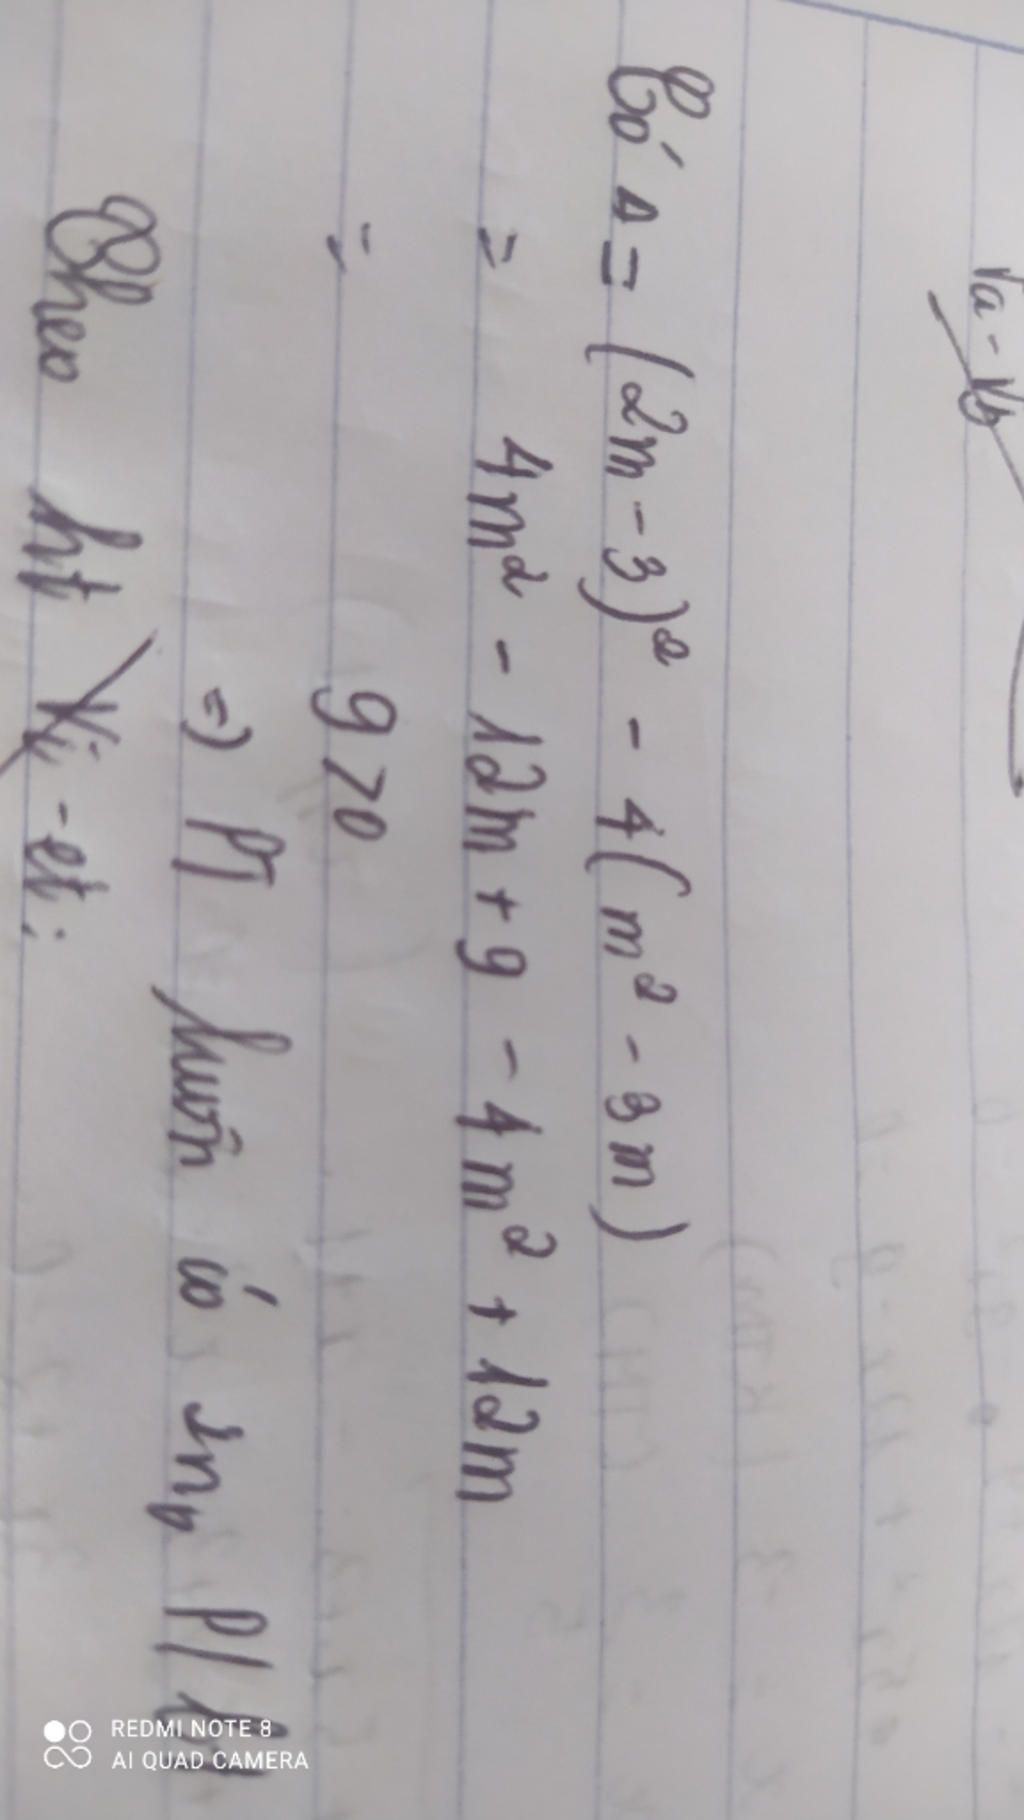 √a - √b
Có Δ = (2m - 3)² - 4(m² - 3m)
= 4m² - 12m + 9 - 4m² + 12m
= 9 > 0
=> PT luôn có 2n₀ p/b
Theo ht Vi-et:
REDMI NOTE 8
AI QUAD CAMERA